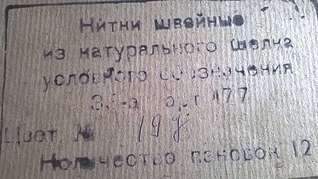 Нитки швейные
из натурального шелка
условного обозначения
арт 177
Цвет № 19
Количество паковок 12